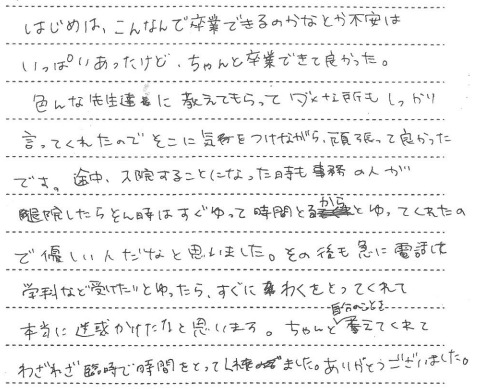 はじめは、こんなんで卒業できるのかなとか不安は
いっぱいあったけど、ちゃんと卒業できて良かった。
色んな先生達に教えてもらってダメな所もしっかり
言ってくれたのでそこに気をつけながら、頑張って良かった
です。途中、入院することになった時も事務の人が
退院したらそん時はすぐゆって時間とるからとゆってくれたの
で優しい人だなと思いました。その後も急に電話して
学科など受けたいとゆったら、すぐにわくをとってくれて
本当に迷惑かけたなと思います。ちゃんと自分のことを考えてくれて
わざわざ臨時で時間をとってくれました。ありがとうございました。